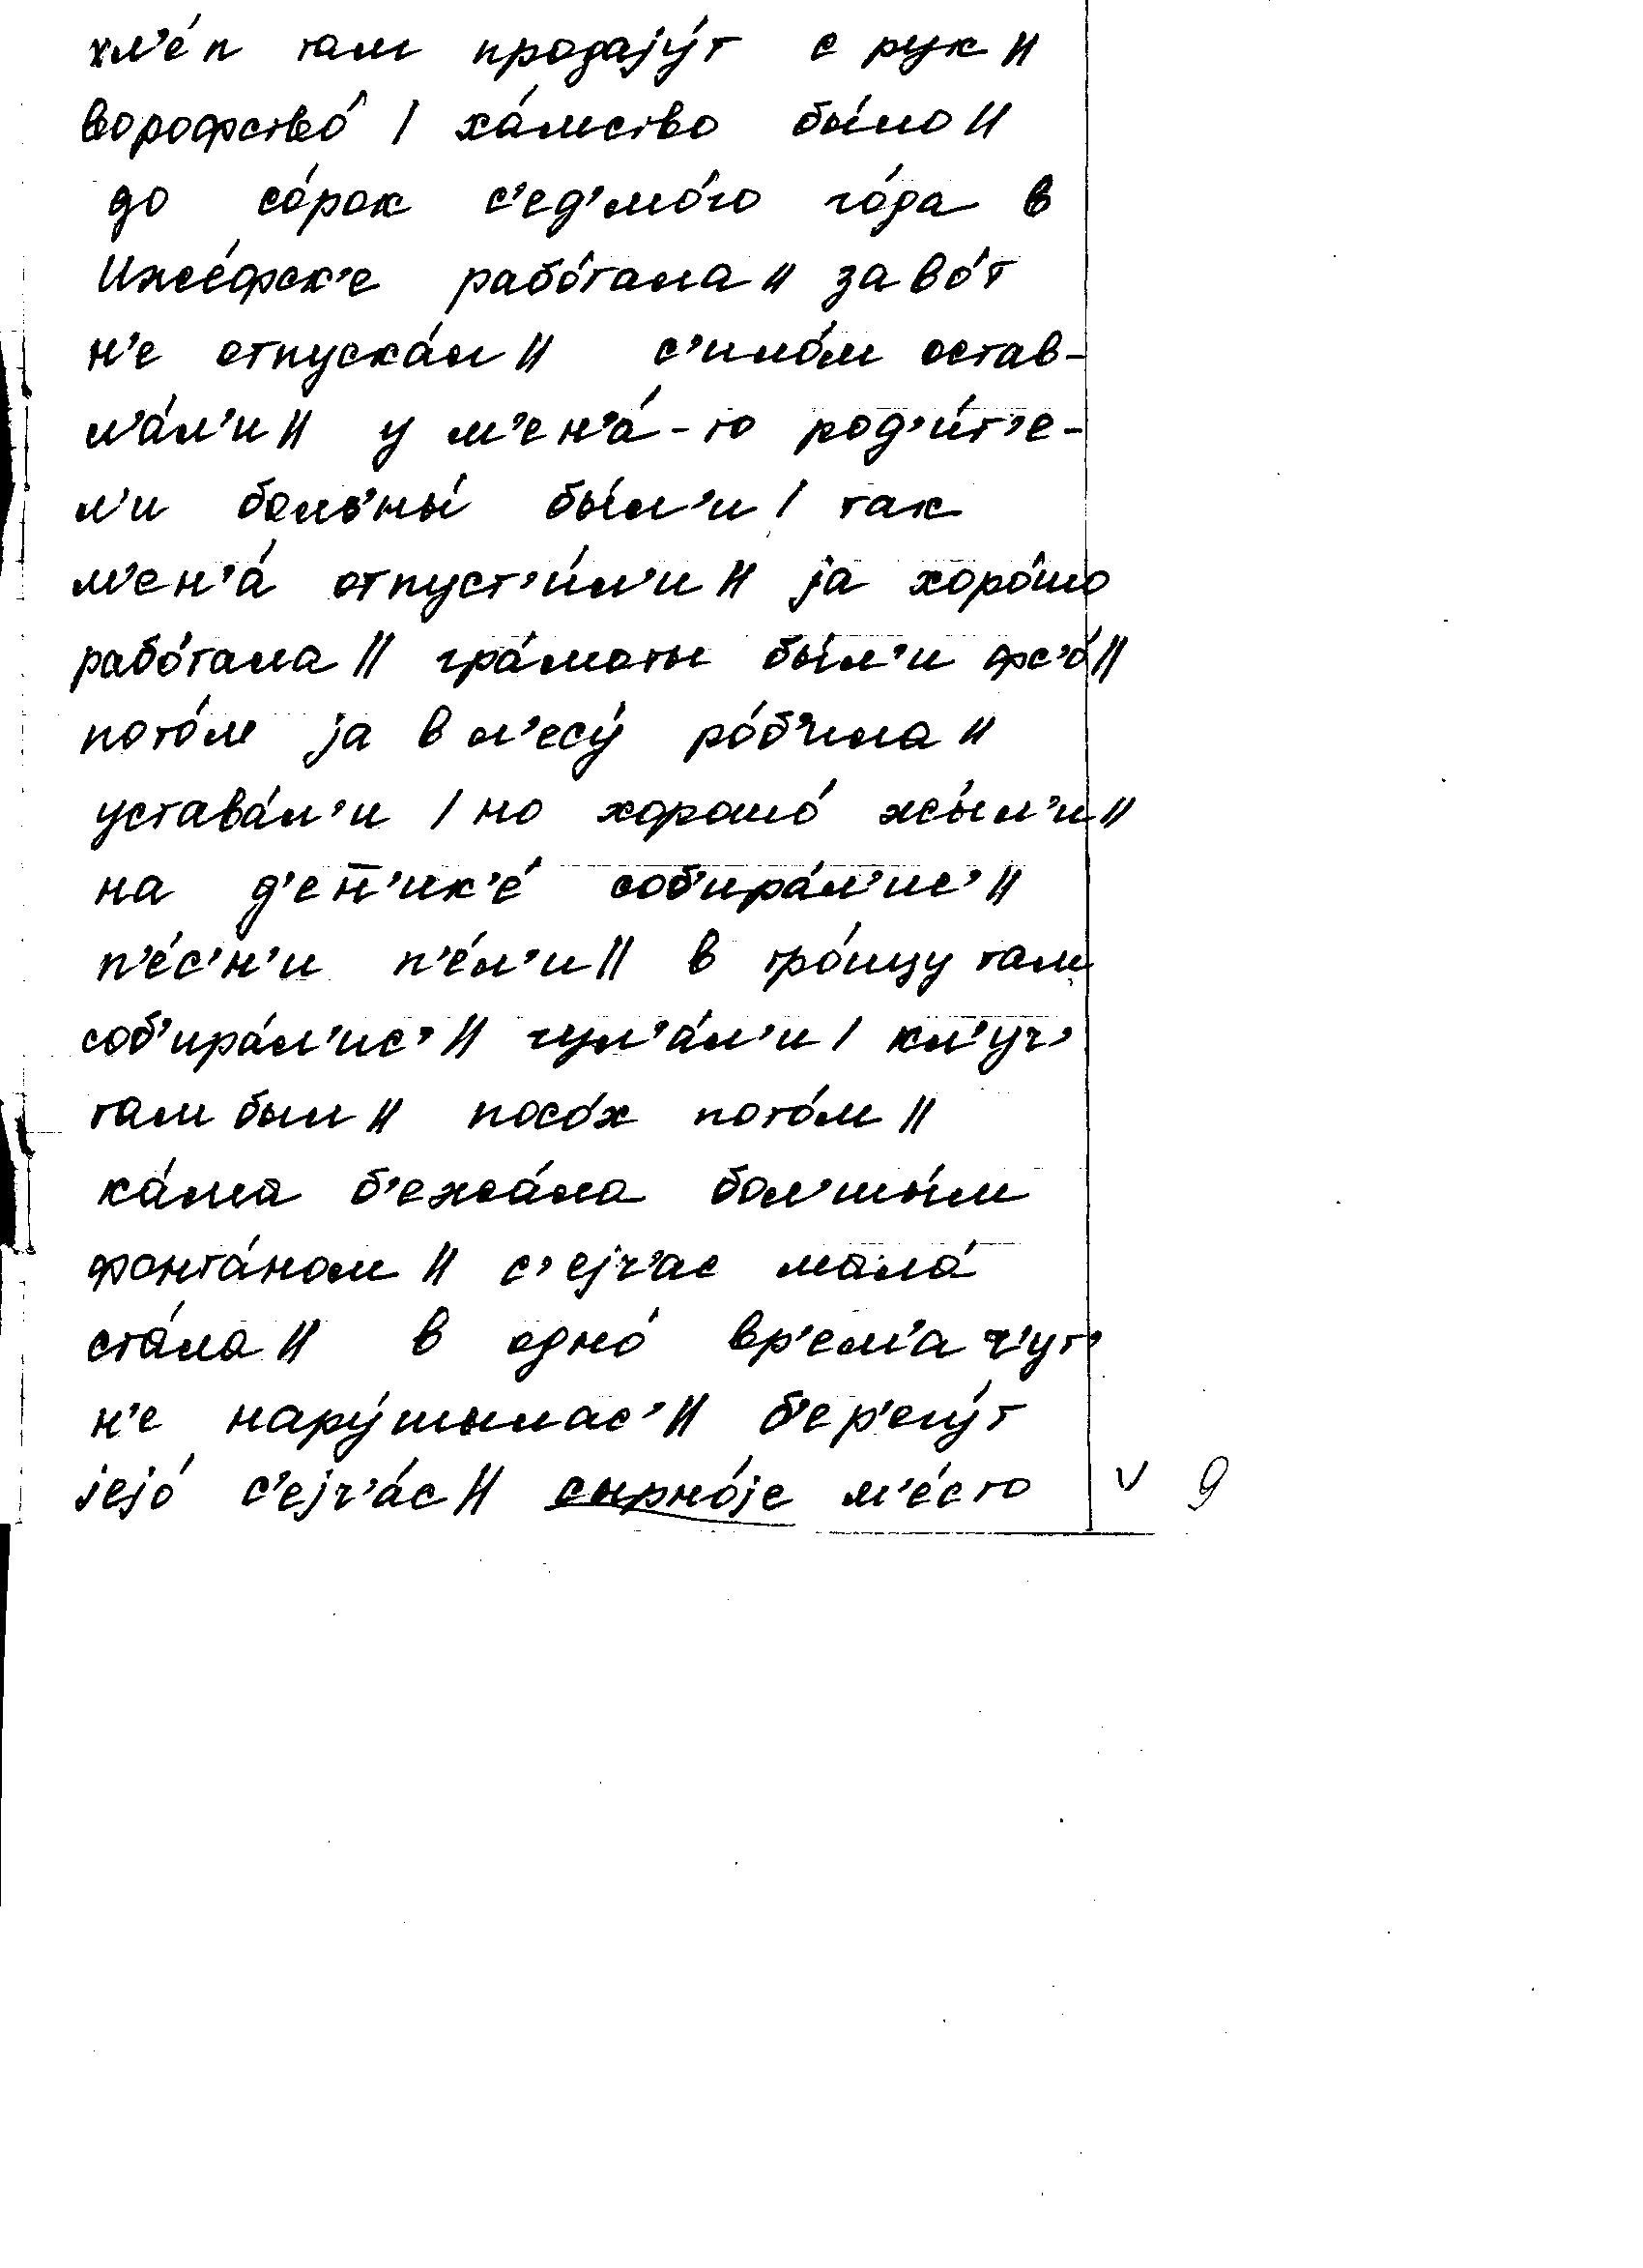 хл'е́п там продају́т с рук //
ворофство́ / ха́мство бы́ло //
до со́рок с'ед'мо́го го́да в
Иже́фск'е рабо́тала // заво́т
н'е отпуска́л // с'ило́м остав-
л'а́л'и // у м'ен'а́-то род'и́т'е-
л'и больны́ бы́л'и / так
м'ен'а́ отпуст'и́л'и // ја хоро́шо
рабо́тала // гра́моты бы́л'и фс'о́ //
пото́м ја в л'есу́ ро́б'ила //
устава́л'и / но хорошо́ жы́л'и //
на соб'ира́л'ис' //
п'е́с'н'и п'е́л'и // в тро́ицу там
соб'ира́л'ис' // гул'а́л'и / кл'уч'
там был // посо́х пото́м //
ка́ма б'ежа́ла бол'шы́м
фонта́ном // с'ејч'ас мала́
ста́ла // в одно́ вр'ем'а ч'ут'
н'е нару́шылас' // б'ер'егу́т
јејо́ с'ејч'а́с // сырно́је м'е́сто v 9